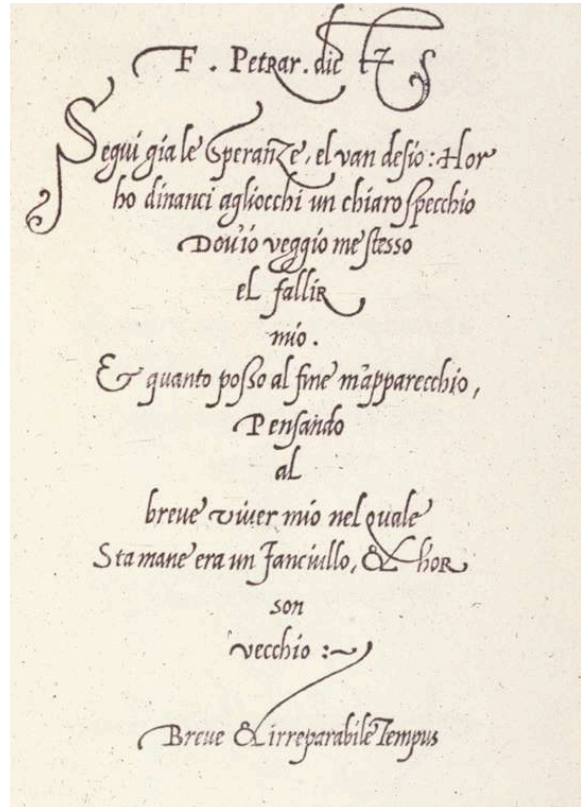 F . Petrar. dic
Segui gia le Speranze, el van deſio : Hor
ho dinanci agliocchi un chiaro ſpecchio
Dou'io veggio me ſteſso
el fallir
mio .
& quanto poſso al fine m'apparecchio ,
Penſando
al
breue viuer mio nel quale
Sta mane era un fanciullo, & hor
son
vecchio :~
Breue & irreparabile Tempus